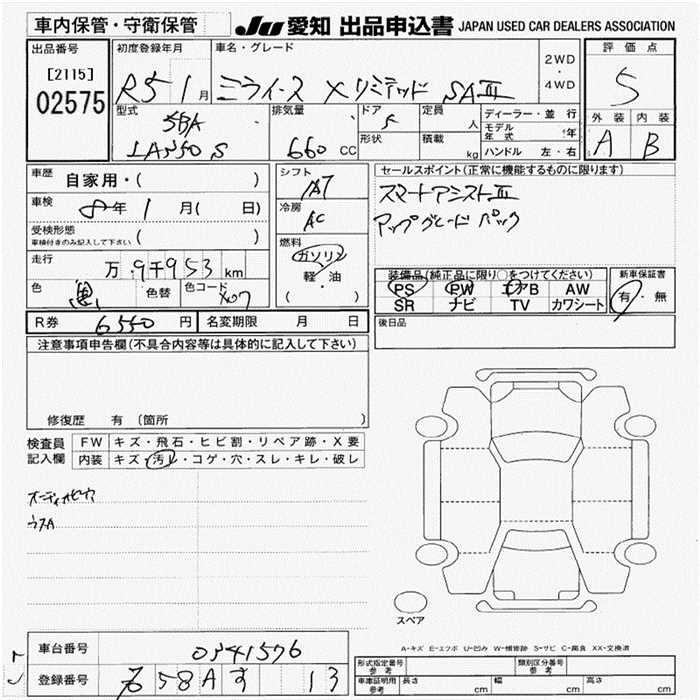 車内保管・守衛保管 JU 愛知 出品申込書 JAPAN USED CAR DEALERS ASSOCIATION
出品番号 初度登録年月 車名・グレード 2WD・4WD 評価点
[2115] R5 1月 ミライース XリミテッドSAⅢ 5
02575
型式 排気量 ドア 定員 人 ディーラー・並行 外装 内装
5BA 5 モデル年式 ・年 A B
LA350S 660cc 形状 積載 kg ハンドル 左・右
車歴 自家用・( ) シフト AT セールスポイント(正常に機能するものに限ります)
車検 8年 1月( 日) 冷房 AC スマートアシストⅢ
受検形態 車検付きのみ記入して下さい ( ) アップグレードパック
走行 万 9千953km 燃料 ガソリン 軽・油 ( )
色 黒 色替 色コード X07
装備品(純正品に限り○をつけてください) 新車保証書
PS PW エアB AW 有・無
SR ナビ TV カワシート
R券 6550円 名変期限 月 日 後日品
注意事項申告欄(不具合内容等は具体的に記入して下さい)
修復歴 有 (箇所 )
検査員記入欄 FW キズ・飛石・ヒビ割・リペア跡・X要
内装 キズ・汚レ・コゲ・穴・スレ・キレ・破レ
スペア
A-キズ E-エクボ U-凹み W-補修跡 S-サビ C-腐食 XX-交換済
車台番号 0341576
登録番号 58A す 13
形式指定番号 参考 類別区分番号 参考
車庫証明用 参考 長さ cm 幅 cm 高さ cm